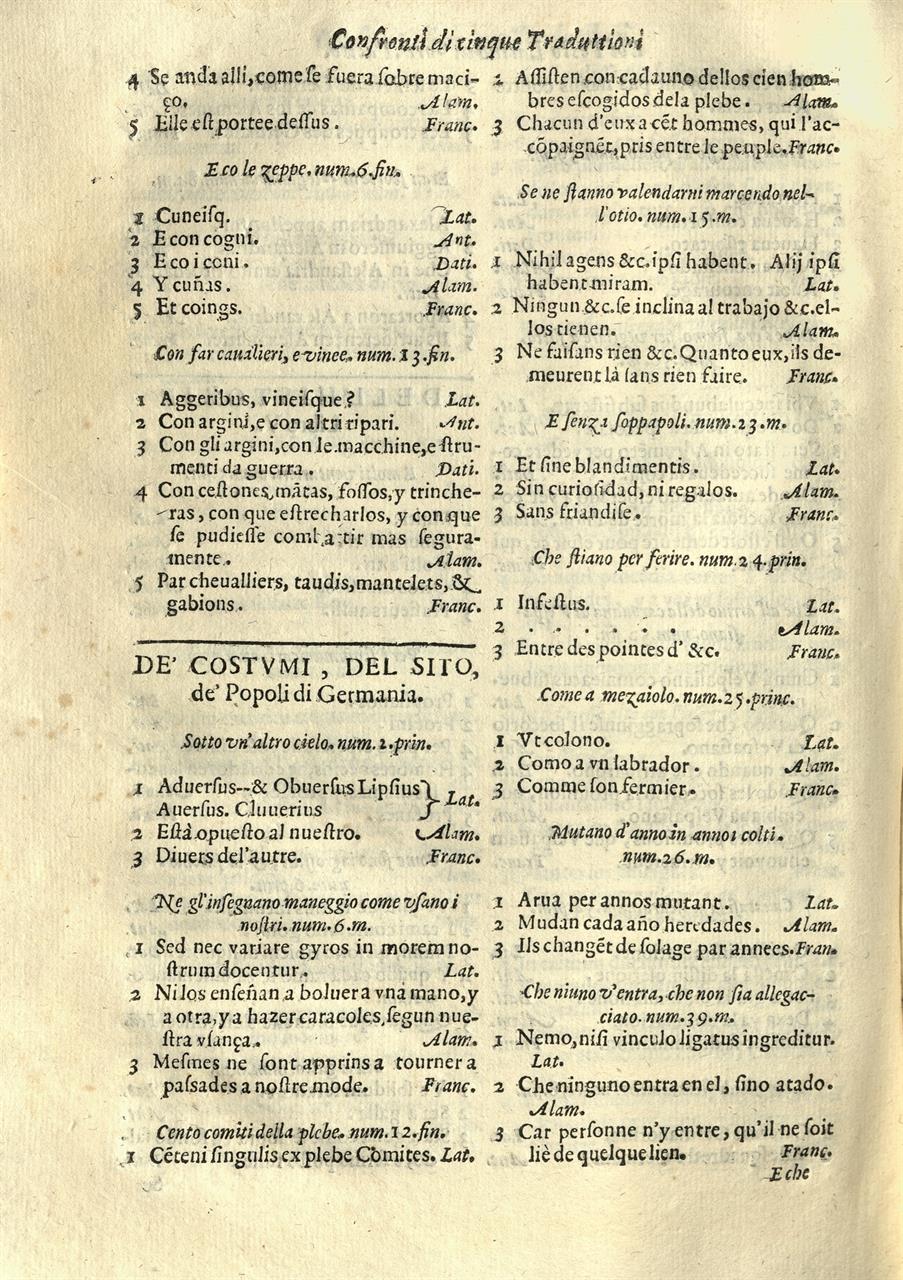 Confronti di cinque Traduttioni
4 Se anda alli, come se fuera sobre maci-
ço. Alam.
5 Elle est portee dessus. Franc.
E co le zeppe. num. 6. fin.
1 Cuneisq. Lat.
2 E con cogni. Ant.
3 E co i coni. Dati.
4 Y cuñas. Alam.
5 Et coings. Franc.
Con far caualieri, e vinee. num. 13. fin.
1 Aggeribus, vineisque? Lat.
2 Con argini, e con altri ripari. Ant.
3 Con gli argini, con le macchine, e stru-
menti da guerra. Dati.
4 Con cestones, mãtas, fossos, y trinche-
ras, con que estrecharlos, y con que
se pudiesse combatir mas segura-
mente. Alam.
5 Par cheualliers, taudis, mantelets, &
gabions. Franc.
DE' COSTVMI, DEL SITO,
de' Popoli di Germania.
Sotto vn' altro cielo. num. 2. prin.
1 Aduersus--& Obuersus Lipsius
Auersus. Cluuerius } Lat.
2 Està opuesto al nuestro. Alam.
3 Diuers del'autre. Franc.
Ne gl'insegnano maneggio come vsano i
nostri. num. 6. m.
1 Sed nec variare gyros in morem no-
strum docentur. Lat.
2 Ni los enseñan a boluer a vna mano, y
a otra, y a hazer caracoles, segun nue-
stra vsança. Alam.
3 Mesmes ne sont apprins a tourner a
passades a nostre mode. Franc.
Cento comiti della plebe. num. 12. fin.
1 Cẽteni singulis ex plebe Comites. Lat.
2 Assisten con cada uno dellos cien hom-
bres escogidos de la plebe. Alam.
3 Chacun d'eux a cẽt hommes, qui l'ac-
cõpaignẽt, pris entre le peuple. Franc.
Se ne stanno valendarni marcendo nel-
l'otio. num. 15. m.
1 Nihil agens &c. ipsi habent. Alij ipsi
habent miram. Lat.
2 Ningun &c. se inclina al trabajo &c. el-
los tienen. Alam.
3 Ne faisans rien &c. Quanto eux, ils de-
meurent là sans rien faire. Franc.
E senza soppapoli. num. 23. m.
1 Et sine blandimentis. Lat.
2 Sin curiosidad, ni regalos. Alam.
3 Sans friandise. Franc.
Che stiano per ferire. num. 24. prin.
1 Infestus. Lat.
2 . . . . . . Alam.
3 Entre des pointes d' &c. Franc.
Come a mezaiolo. num. 25. princ.
1 Vt colono. Lat.
2 Como a vn labrador. Alam.
3 Comme son fermier. Franc.
Mutano d'anno in anno i colti.
num. 26. m.
1 Arua per annos mutant. Lat.
2 Mudan cada año heredades. Alam.
3 Ils changẽt de solage par annees. Fran.
Che niuno v'entra, che non sia allegac-
ciato. num. 39. m.
1 Nemo, nisi vinculo ligatus ingreditur.
Lat.
2 Che ninguno entra en el, sino atado.
Alam.
3 Car personne n'y entre, qu'il ne soit
liè de quelque lien. Franc.
E che